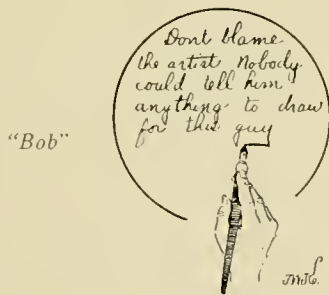 Dont blame
the artist Nobody
could tell him
anything to draw
for this guy
"Bob"